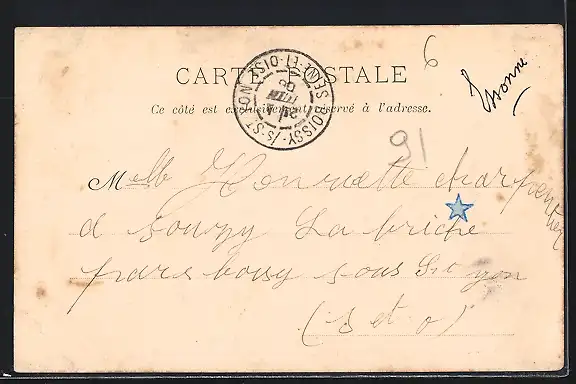 6
Yvonne
CARTE POSTALE
Ce côté est exclusivement réservé à l'adresse.
BOISSY-/s-ST-YON SEINE-ET-OISE
91
Melle Henriette charpentier
a souzy La briche
pars boissy sous St yon
(s et o)